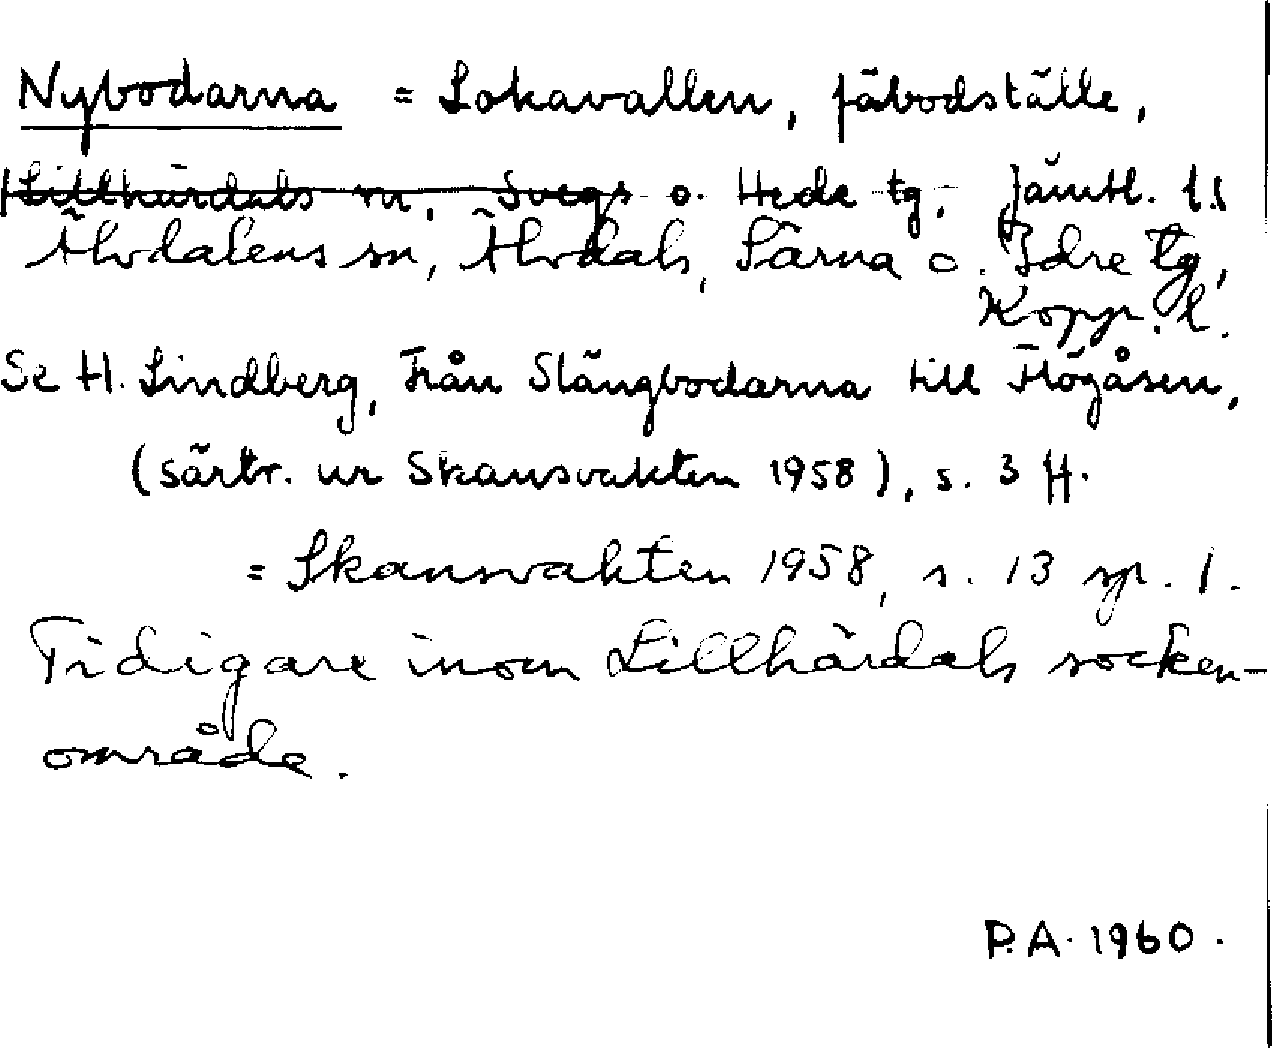 Nybodarna = Lokavallen, fäbodställe,
Lillhärdals sn, Svegs o. Hede tg, Jämtl. l.
Älvdalens sn, Älvdals, Särna o. Idre tg,
Kopp. l.
Se H. Lindberg, Från Slängbodarna till Högåsen,
(särtr. ur Skansvakten 1958), s. 3 ff.
= Skansvakten 1958, s. 13 sp. 1.
Tidigare inom Lillhärdals socken-
område.
P.A. 1960.